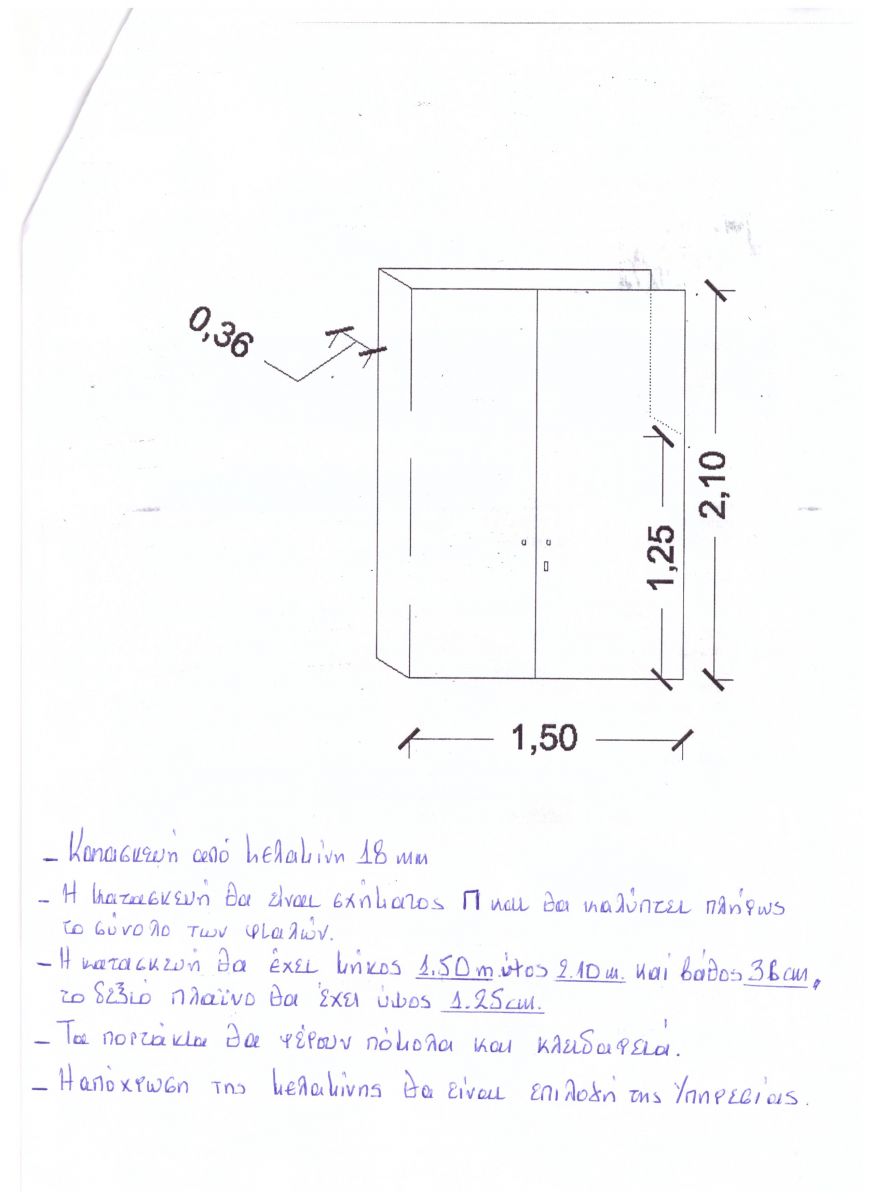 0,36
2,10
1,25
1,50
– Κατασκευή από μελαμίνη 18 mm
– Η κατασκευή θα είναι σχήματος Π και θα καλύπτει πλήρως
το σύνολο των φιαλών.
– Η κατασκευή θα έχει μήκος 1.50 m ύψος 2.10 m. και βάθος 36 cm,
το δεξιό πλαϊνο θα έχει ύψος 1.25 cm.
– Τα πορτάκια θα φέρουν πόμολα και κλειδαρειά.
– Η απόχρωση της μελαμίνης θα είναι επιλογή της Υπηρεσίας.